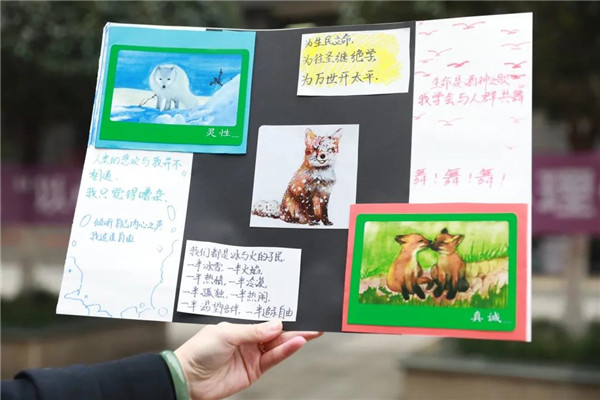 灵性
为生民立命,
为往圣继绝学,
为万世开太平.
生命是酒神之歌
我学会与人群共舞
舞!舞!舞!
人类的悲欢与我并不
相通,
我只觉得嘈杂.
倾听自己内心之声
我追逐自由
我们都是冰与火的子民
一半冰雪,一半火焰,
一半热情,一半冷漠
一半孤独,一半热闹.
一半 陪伴,一半追求自由
真诚
理